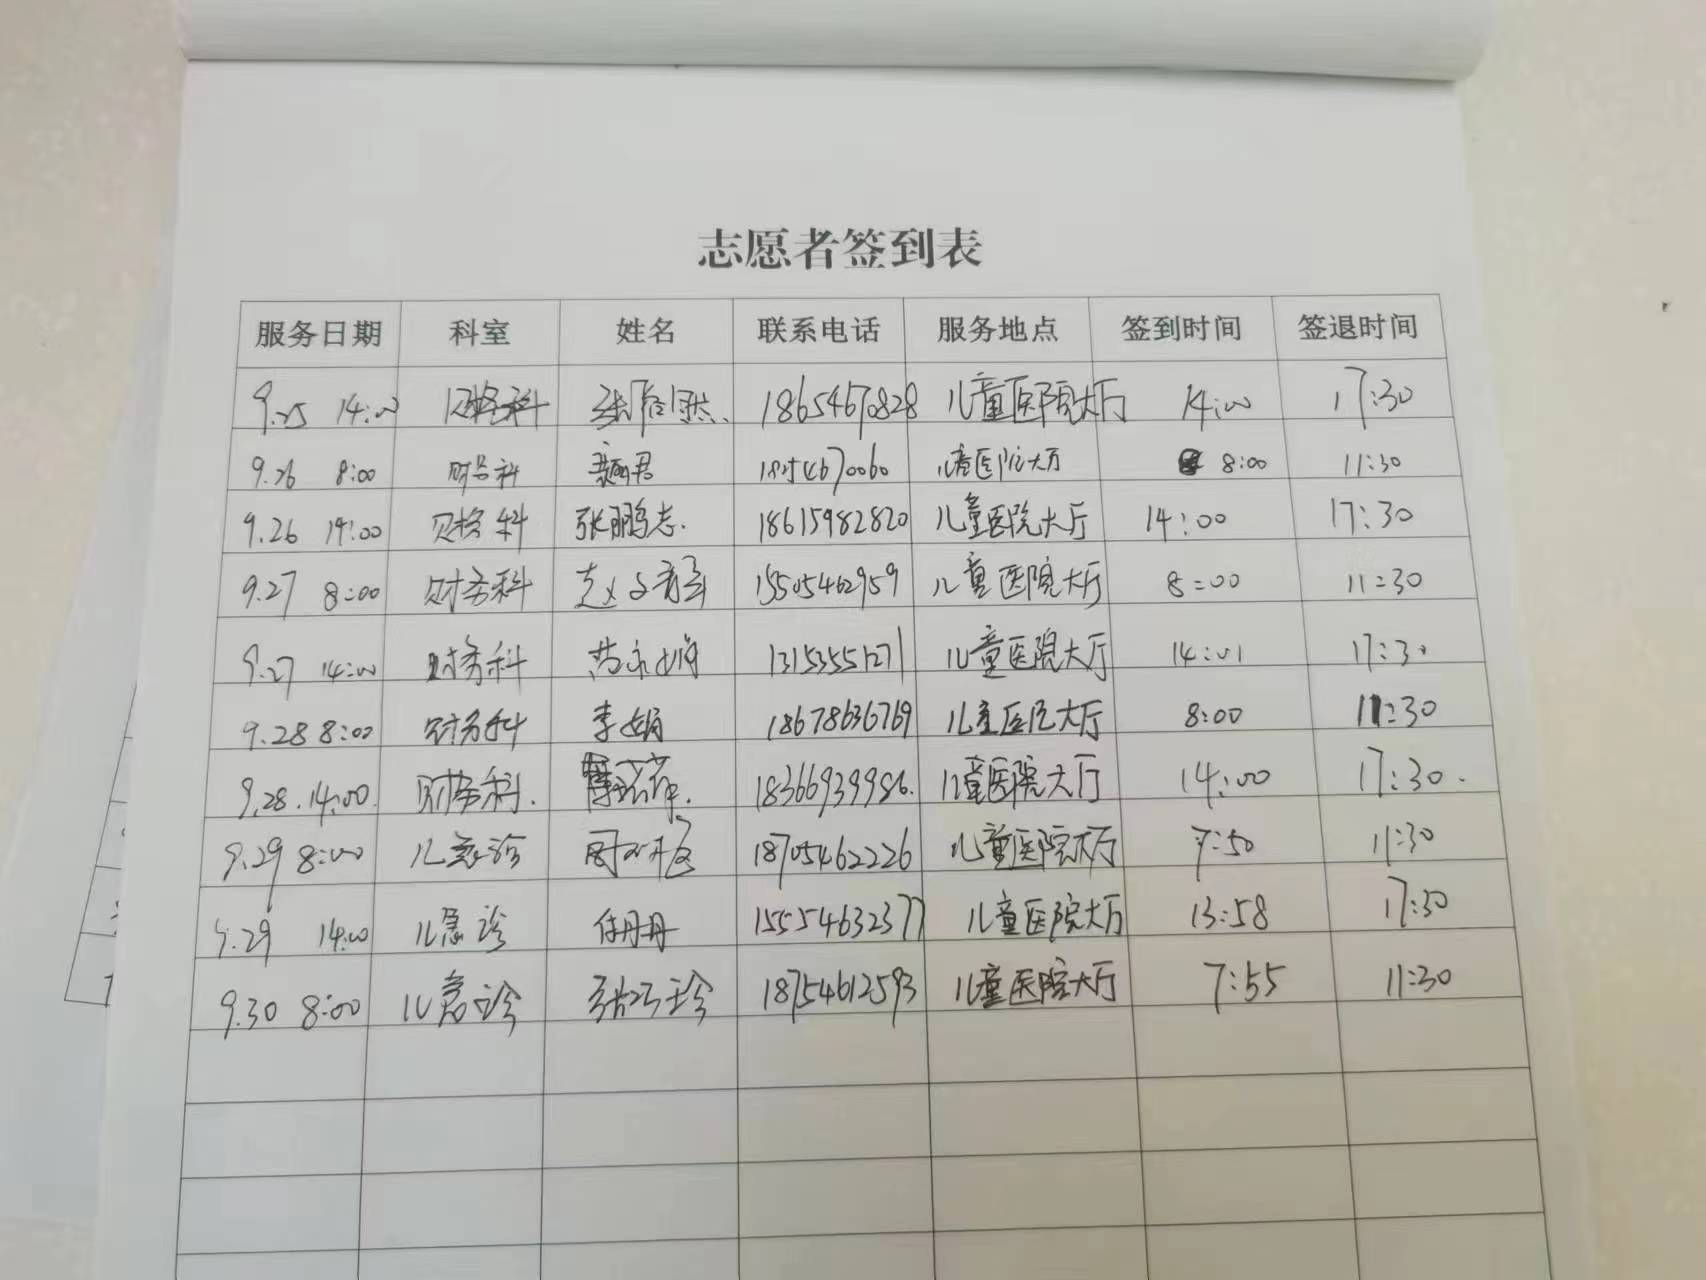 志愿者签到表
服务日期 科室 姓名 联系电话 服务地点 签到时间 签退时间
9.25 14:00 财务科 18654670828 儿童医院大厅 14:00 17:30
9.26 8:00 财务科 儿童医院大厅 8:00 11:30
9.26 14:00 财务科 张鹏志. 18615982820 儿童医院大厅 14:00 17:30
9.27 8:00 财务科 15505462959 儿童医院大厅 8:00 11:30
9.27 14:00 财务科 儿童医院大厅 14:01 17:30
9.28 8:00 财务科 李娟 18678636769 儿童医院大厅 8:00 11:30
9.28.14:00. 财务科. 18366939986. 儿童医院大厅 14:00 17:30.
9.29 8:00 儿急诊 18705462226 儿童医院大厅 7:50 11:30
9.29 14:00 儿急诊 任丹丹 15554632377 儿童医院大厅 13:58 17:30
9.30 8:00 儿急诊 张巧珍 18754612593 儿童医院大厅 7:55 11:30